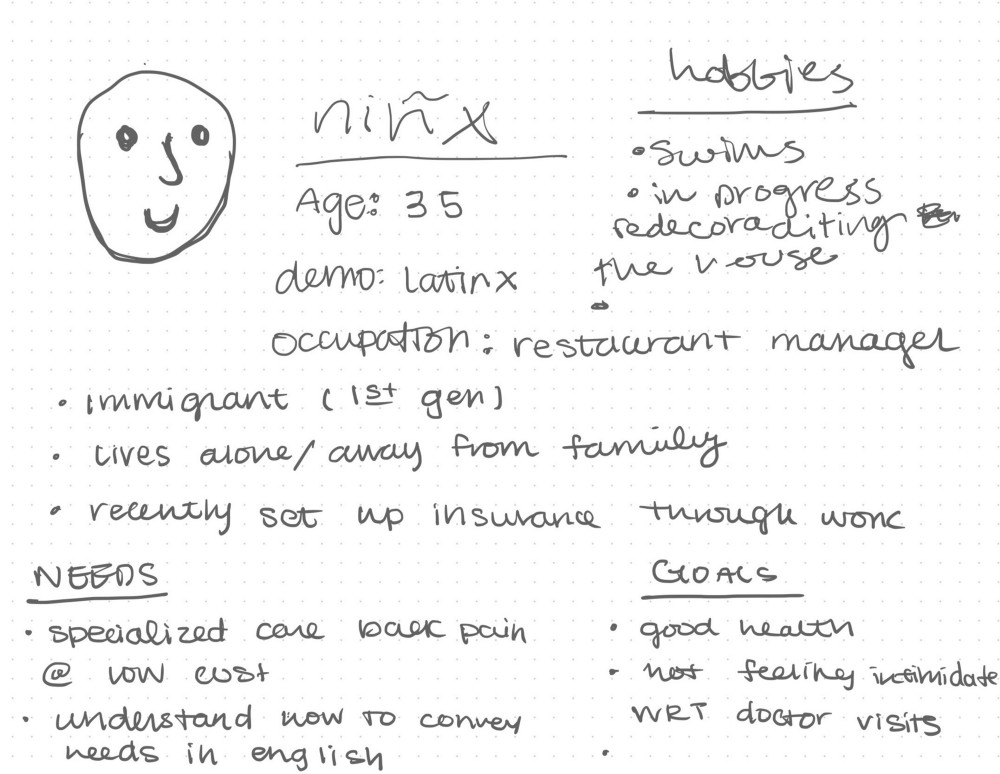 niñx
Age: 35
demo: Latinx
occupation: restaurant manager
hobbies
• swims
• in progress
redecoraditing
the house
• immigrant (1st gen)
• lives alone/away from family
• recently set up insurance through work
NEEDS
• specialized care back pain
@ low cost
• understand how to convey
needs in english
GOALS
• good health
• not feeling intimidate
WRT doctor visits
•